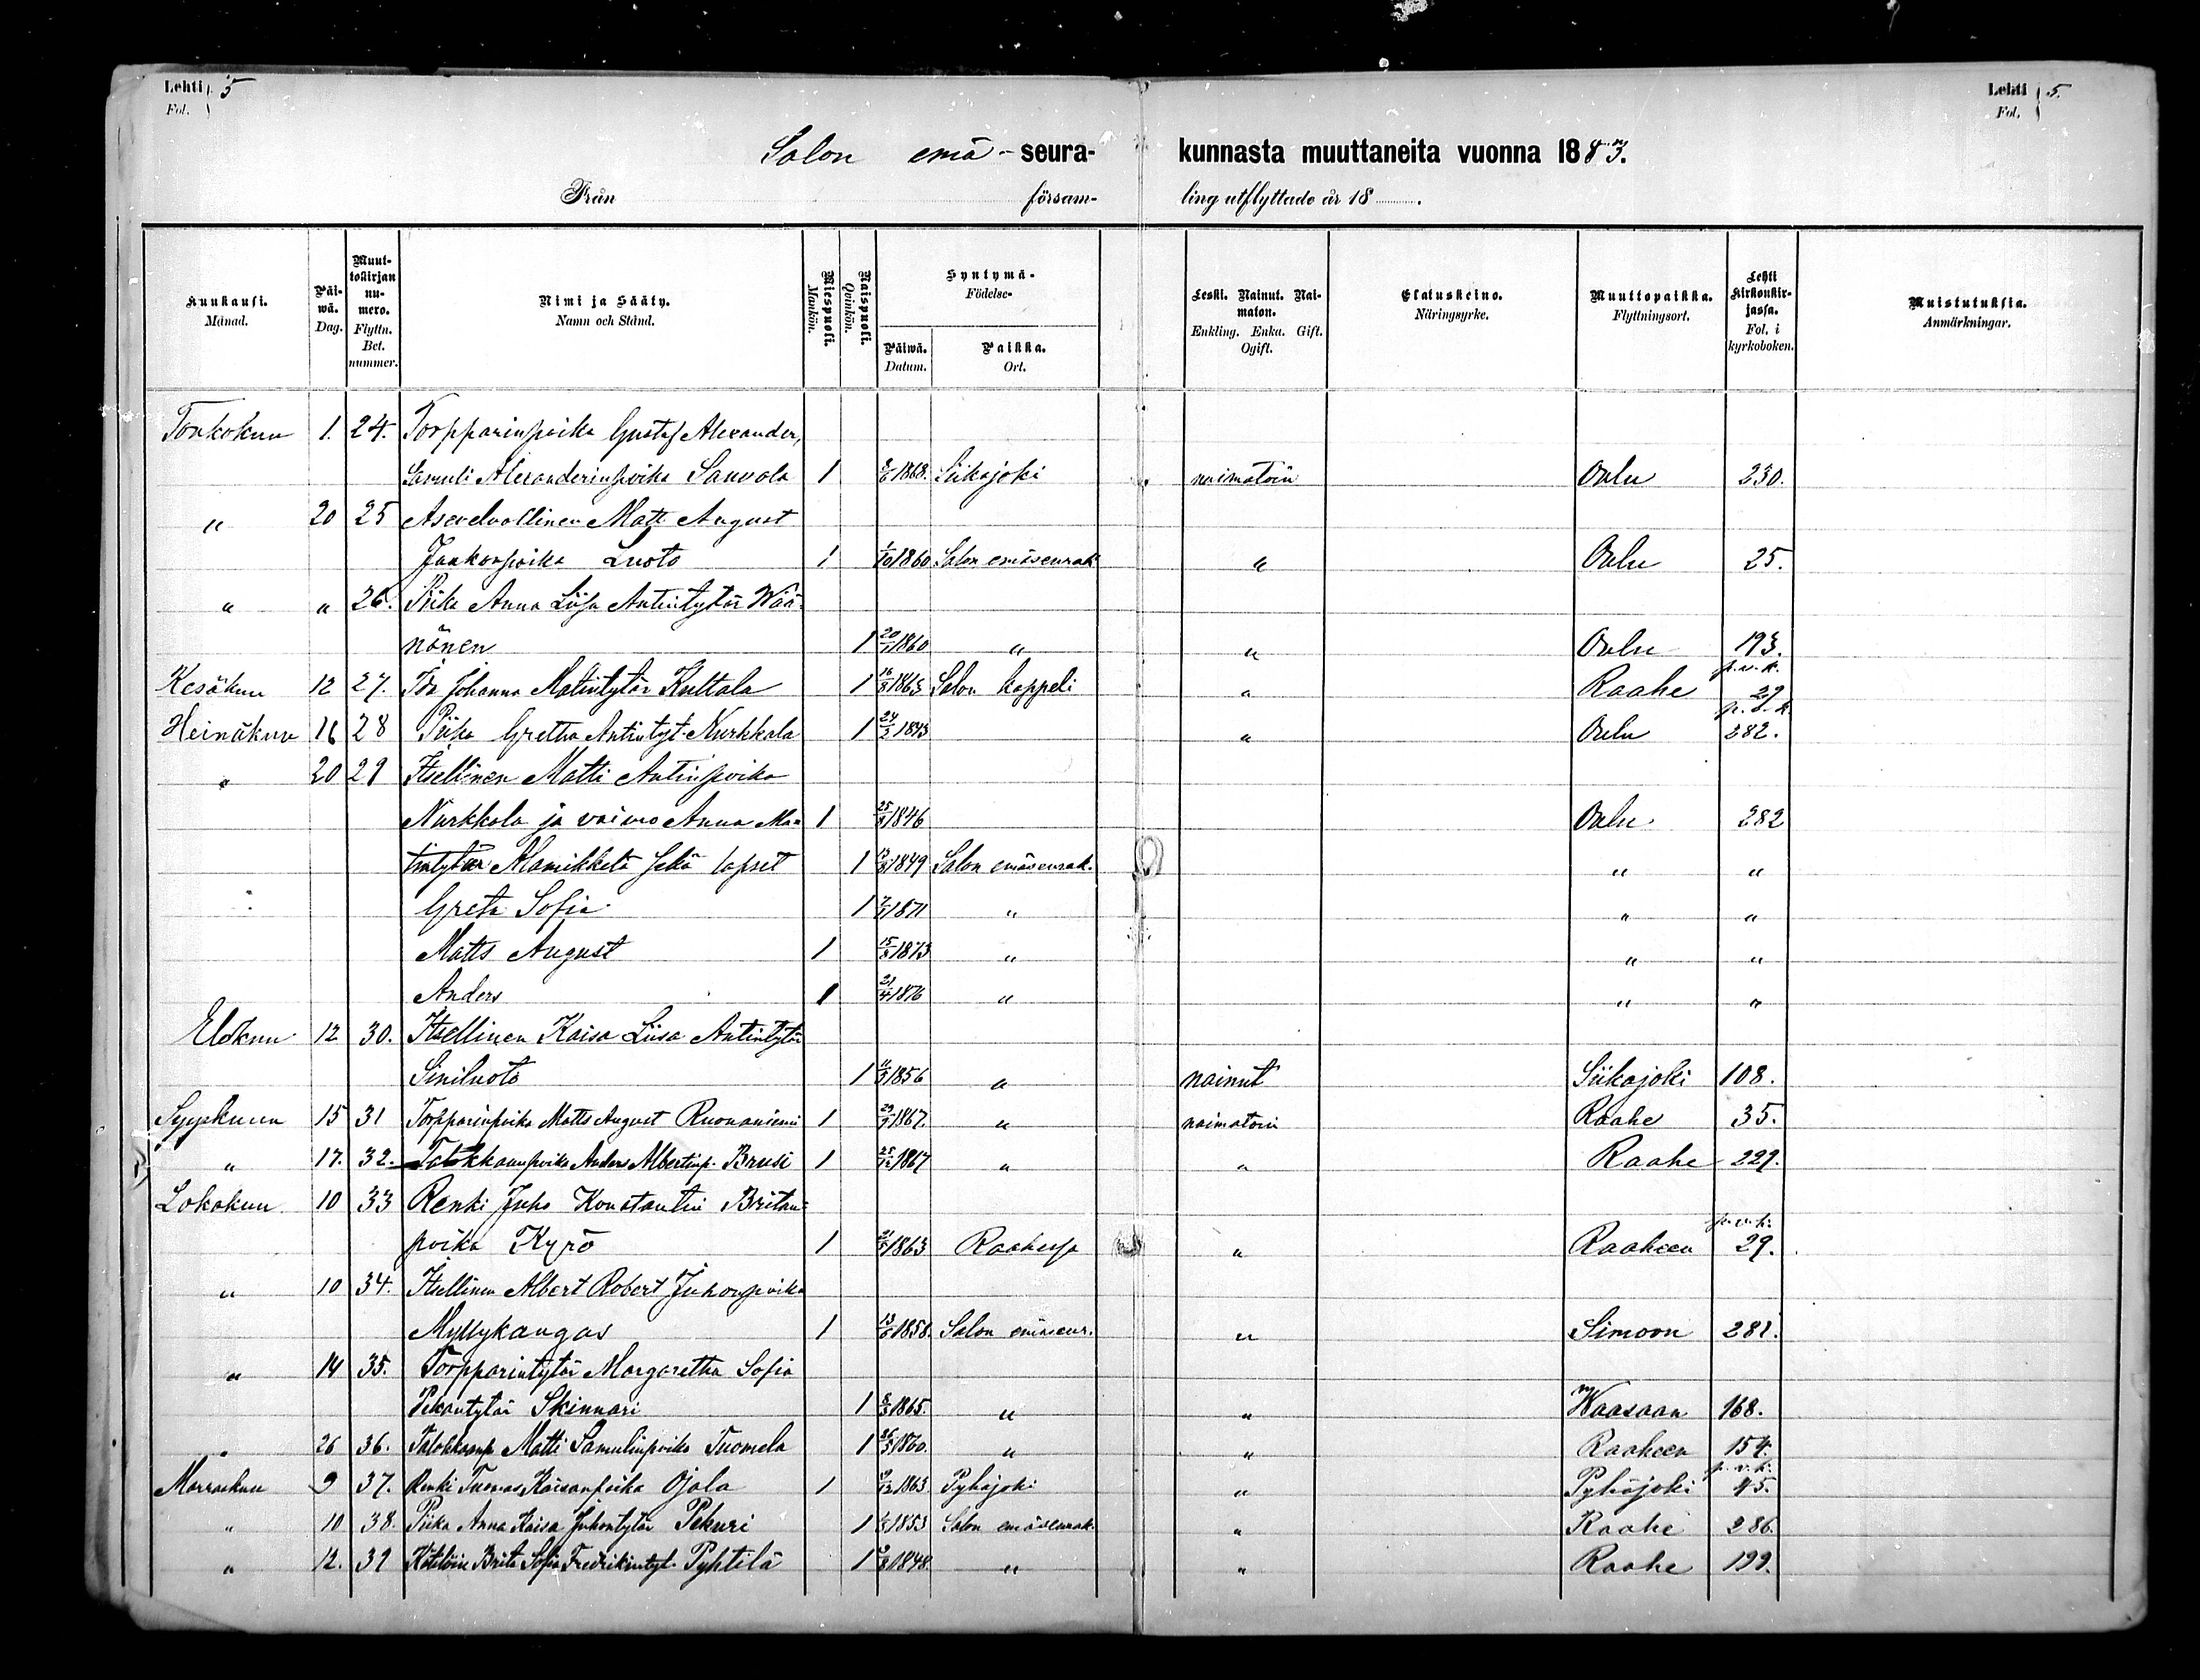 Lehti 5
Fol.
Lehti 5.
Fol.
Salon emä-seura- kunnasta muuttaneita vuonna 1883.
Från försam- ling utflyttade år 18 .
Kuukausi. Månad.
Päiwä. Dag.
Muuttokirjan numero. Flyttn. Bet. nummer.
Nimi ja Sääty. Namn och Stånd.
Miespuoli. Mankön.
Naispuoli. Qvinkön.
Syntymä- Födelse-
Päiwä. Datum.
Paikka. Ort.
Leski. Nainut. Naimaton. Enkling. Enka. Gift. Ogift.
Elatuskeino. Näringsyrke.
Muuttopaikka. Flyttningsort.
Lehti Kirkonkirjassa. Fol. i kyrkoboken.
Muistutuksia. Anmärkningar.
Toukokuu 1. 24. Torpparinpoika Gustaf Alexander,
Samuli Alexanderinpoika Sauvola 1 1868. Siikajoki naimatoin Oulu 230.
" 20 25 Asevelvollinen Matt August
Jaakonpoika Luoto 1 1/10 1860 Salon emäseurak. " Oulu 25.
" " 26. Piika Anna Liisa Antintytär Wää-
nänen 1 1860 " " Oulu 193.
p.v.k.
Kesäkuu 12 27. Ida Johanna Matintytär Kulttala 1 1863 Salon kappeli " Raahe 29
Heinäkuu 16 28 Piika Gretha Antintyt. Nurkkala 1 1843 " Oulu 282.
" 20 29 Itsellinen Matti Antinpoika
Nurkkala ja vaimo Anna Ma- 1 1846 Oulu 282
tintytär Mamikkelä sekä lapset 1 1849 Salon emäseurak. " "
Greta Sofia 1 1871 " " "
Matts August 1 1873 " " "
Anders 1 21/4 1876 " " "
Elokuu 12 30. Itsellinen Kaisa Liisa Antintytär
Siniluoto 1 1856 " nainut Siikajoki 108.
Syyskuun 15 31 Torpparinpoika Matts August Ruonaniemi 1 1867. " naimatoin Raahe 35.
" 17. 32. Talokkaanpoika Anders Albertinp. Brusi 1 25/12 1867 " " Raahe 229.
Lokakuu 10 33 Renki Juho Konstantin Britan-
p.v.k.
poika Kyrö 1 1863 Raahessa " Raaheen 29.
" 10 34. Itsellinen Albert Robert Juhonpoika
Myllykangas 1 1858. Salon emäseur. " Simoon 281.
" 14 35. Torpparintytär Margaretha Sofia
Pekantytär Skinnari 1 1865. " " Waasaan 168.
" 26 36. Talokkaanp. Matti Samulinpoika Tuomela 1 1860. " " Raaheen 154.
p.v.k.
Marraskuu 9 37. Renki Tuomas Kaisanpoika Ojala 1 1863 Pyhäjoki " Pyhäjoki 45.
" 10 38. Piika Anna Kaisa Juhontytär Pekuri 1 1853 Salon emäseurak. " Raahe 286.
" 12. 39 Brita Sofia Fredrikintyt. Pyhtilä 1 1848. " " Raahe 199.